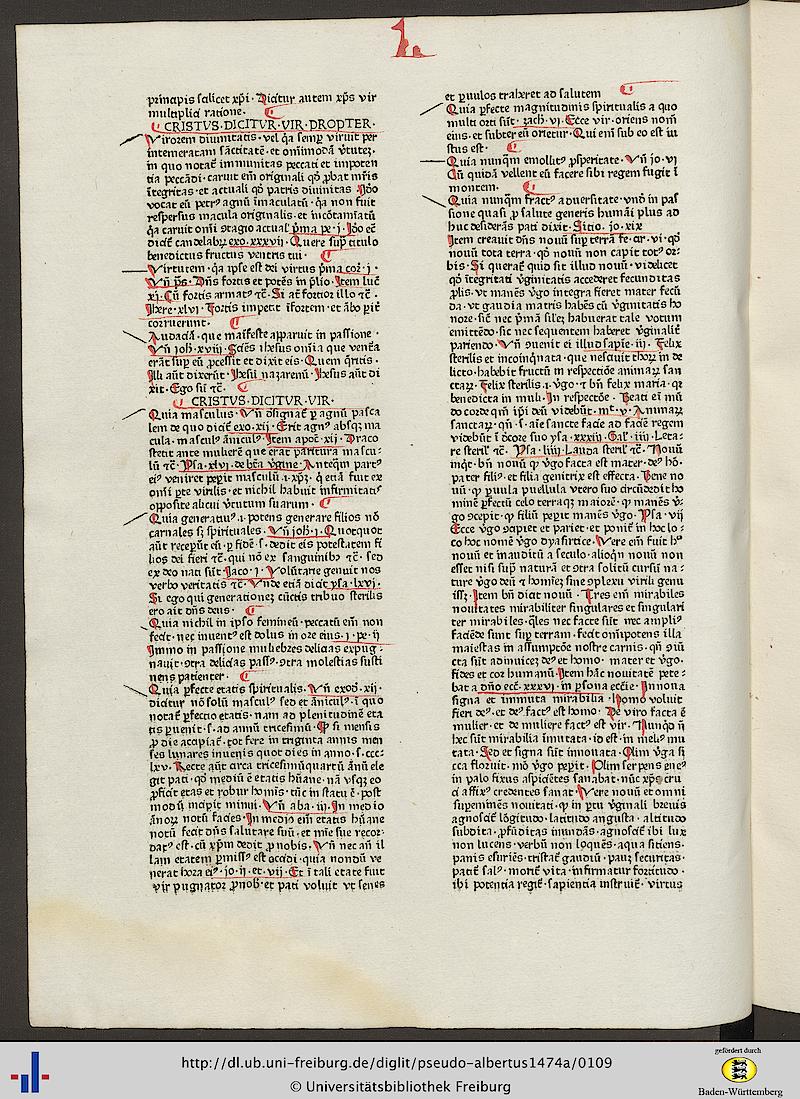 L
principis scilicet xpi · Dicitur autem xps vir
multiplici ratione ·
CRISTVS · DICITVR · VIR · PROPTER ·
Virorem diuinitatis · vel qa semp viruit per
intemeratam sāctitatē · et om̄imodā v̄tutez ·
in quo notat̄ immunitas peccati et impoten
tia peccādi · caruit em̄ originali qd̄ ꝓbat mr̄is
ītegritas · et actuali qd̄ patris diuinitas
vocat eū petrꝰ agnū īmaculatū · qa non fuit
respersus macula originalis · et incōtamīatū
qa caruit om̄i ɔtagio actuali p̄ma pe · j ·
dicit̄ candelabrū exo · xxxvij · Quere sup titulo
benedictus fructus ventris tui ·
Virtutem · qa ipse est dei virtus p̄ma cor̄ · j ·
Vn̄ ps̄ · Dn̄s fortis et potēs in p̄lio · Item luc̄
xj · Cū fortis armatꝰ ⁊c̄ · Si at̄ fortior illo ⁊c̄ ·
Ihere · xlvj · Fortis impetit īfortem · et ābo pit̄
corruerunt ·
Audaciā · que maīfeste apparuit in passione ·
Vn̄ joh̄ · xviij · Sciēs ihesus om̄ia que vent̄a
erāt sup eū ꝓcessit et dixit eis · Quem q̄ritis ·
Illi aūt dixerūt · Ihesū nazarenū · Ihesus aūt di
xit · Ego sū ⁊c̄ ·
CRISTVS · DICITVR · VIR ·
Quia masculus · Vn̄ dsignat̄ p agnū pasca
lem de quo dicit̄ exo · xij · Erit agnꝰ absqz ma
cula · masculꝰ āniculꝰ · Item apoc̄ · xij · Draco
stetit ante mulierē que erat paritura mascu-
lū ⁊c̄ · Ysa · xlvj · de bt̄a v̄gine · Anteqm̄ partꝰ
eiꝰ veniret peꝑit masculū · i · xpz · q̄ etiā fuit ex
om̄i pte virilis · et nichil habuit infirmitatis
opposite alicui v̄tutum suarum ·
Quia generatiuꝰ · i · potens generare filios nō
carnales sz spirituales · Vn̄ joh̄ · j · Quotquot
aūt receperūt eū · p fidē · s · dedit eis potestatem fi
lios dei fieri ⁊c̄ · qui nō ex sanguinibꝰ ⁊c̄ · sed
ex deo nati sūt · Iaco · j · Volūtarie genuit nos
verbo veritatis ⁊c̄ · Vnde etiā dicit ysa · lxvj ·
Si ego qui generationez cūctis tribuo sterilis
ero ait dn̄s deus ·
Quia nichil in ipso femineū · peccatū em̄ non
fecit · nec inuentꝰ est dolus in ore eius · j · pe · ij
Immo in passione muliebres delicias expug-
nauit · ɔtra delicias passꝰ · ɔtra molestias susti
nens patienter ·
Quia ꝑfecte etatis spiritualis · Vn̄ exod̄ · xij ·
dicitur nō solū masculꝰ sed et āniculꝰ · ī quo
notat̄ ꝑfectio etatis · nam ad plenitudinē eta
tis puenit · s · ad annū tricesimū · Et si mensis
ꝓ die accipiat̄ · qt̄ fere in triginta annis men
ses lunares inuenis quot dies in anno · s · ccc ·
lxv · Recte aūt circa tricesimūquartū ānū ele
git pati · qd̄ mediū ē etatis hūane · nā vsqz eo
ꝓficit etas et robur homīs · tūc in statu ē · post
modū incipit minui · Vn̄ aba · iij · In medio
ānoꝝ notū facies · In medio em̄ etatis hūane
notū fecit dn̄s salutare suū · et mīe sue recor-
datꝰ est · cū xp̄m dedit ꝓ nobis · Vn̄ nec an̄ il
lam etatem ꝑmissꝰ est occidi · quia nondū ve
nerat hora eiꝰ · jo · ij · et · vij · Et ī tali etate fuit
vir pugnatoꝝ ꝓ nob̄ · et pati voluit vt senes
et ꝑuulos traheret ad salutem
Quia ꝑfecte magnitudinis spiritualis a quo
multi orti sūt · zach · vj · Ecce vir · oriens nom̄
eius · et subter eū orietur · Qui em̄ sub eo est iu
stus est ·
Quia nunqm̄ emollitꝰ ꝓsperitate · Vn̄ jo · vj
Cū quidā vellent eū facere sibi regem fugit ī
montem ·
Quia nunqm̄ fractꝰ aduersitate · vnd̄ in pas
sione quasi ꝓ salute generis humāi plus ad
huc desiderās pati dixit · Sitio · jo · xix
Item creauit dn̄s nouū sup terrā
nouū tota terra · qd̄ nouū non capit totꝰ or-
bis · Si querat̄ quid sit illud nouū · videlicet
qd̄ ītegritati v̄ginitatis accederet fecunditas
ꝓlis · vt manēs v̄go integra fieret mater fecū
da · vt gaudia matris habēs cū v̄ginitatis ho
nore · sic̄ nec p̄mā silez habuerat tale votum
emittēdo · sic nec sequentem haberet v̄ginalit̄
pariendo · Vn̄ ɔuenit ei illud sapīe · iij · Felix
sterilis et incoinquinata · que nesciuit thoꝝ in de
licto · habebit fructū in respectiōe animaꝝ san
ctaꝝ · Felix sterilis · i · v̄go · ⁊ bn̄ felix maria · qz
benedicta in muli · In respectiōe · Beati em̄ mū
do corde qm̄ ip̄i deū videbūt · mt̄ · v · Animaꝝ
sanctaꝝ · qn̄ · s · aīe sancte facie ad faciē regem
videbūt ī dcore suo ysa · xxxiij · Gal̄ · iiij · Leta-
re steril̄ ⁊c̄ · Ysa · liiij · Lauda steril̄ ⁊c̄ · Nouū
inqt̄ · bn̄ nouū qz v̄go facta est mater · deꝰ hō ·
pater filiꝰ · et filia genitrix est effecta · Bene no
uū · qz ꝑuula puellula vtero suo circūdedit ho
minē ꝑfectū celo terraqz maiorē · qz manēs v̄-
go ɔcepit · qz filiū peperit manēs v̄go · Ysa · vij
Ecce v̄go ɔcipiet et pariet · et ponit̄ in hoc lo-
co hoc nomē v̄go · Vere em̄ fuit hꝰ
nouū et inauditū a seculo · alioqn̄ nouū non
esset nisi sup naturā et ɔtra solitū cursū na-
ture v̄go deū ⁊ hoīez sine ɔplexu virili genu
issz · Item bn̄ dicit̄ nouū · Tres em̄ mirabiles
nouitates mirabiliter singulares et singulari
ter mirabiles · q̄les nec facte sūt nec ampliꝰ
faciēde sunt sup terram · fecit om̄ipotens illa
maiestas in assumptōe nostre carnis · qn̄ ɔiū
cta sūt adinuicez deꝰ et homo · mater et v̄go ·
fides et cor humanū · Item hāc nouitatē pete-
bat a dn̄o ecc̄ · xxxvj · in ꝑsona ecc̄ie · Innoua
signa et immuta mirabilia · Homo voluit
fieri deꝰ · et deꝰ factꝰ est homo · De viro facta ē
mulier · et de muliere factꝰ est vir · Nunqd̄ n̄
hec sūt mirabilia īmutata · id est · in meliꝰ mu
tata · Sed et signa sūt innouata · Olim v̄ga si
cca floruit · mō v̄go peꝑit · Olim serpens eneꝰ
in palo fixus aspiciētes sanabat · nūc xp̄c cru
ci affixꝰ credentes sanat · Vere nouū et om̄i
supeminēs nouitati · qz in ptu v̄ginali breuis
agnoscit̄ lōgitudo · latitudo angusta · altitudo
subdita · ꝓfūditas inundās · agnoscit̄ ibi lux
non lucens · verbū non loquēs · aqua sitiens ·
panis esuriēs · tristat̄ gaudiū · pauz securitas ·
patit̄ salꝰ · morit̄ vita · infirmatur fortitudo ·
ibi potentia regit̄ · sapientia instruit̄ · virtus
http://dl.ub.uni-freiburg.de/diglit/pseudo-albertus1474a/0109
© Universitätsbibliothek Freiburg
gefördert durch
Baden-Württemberg